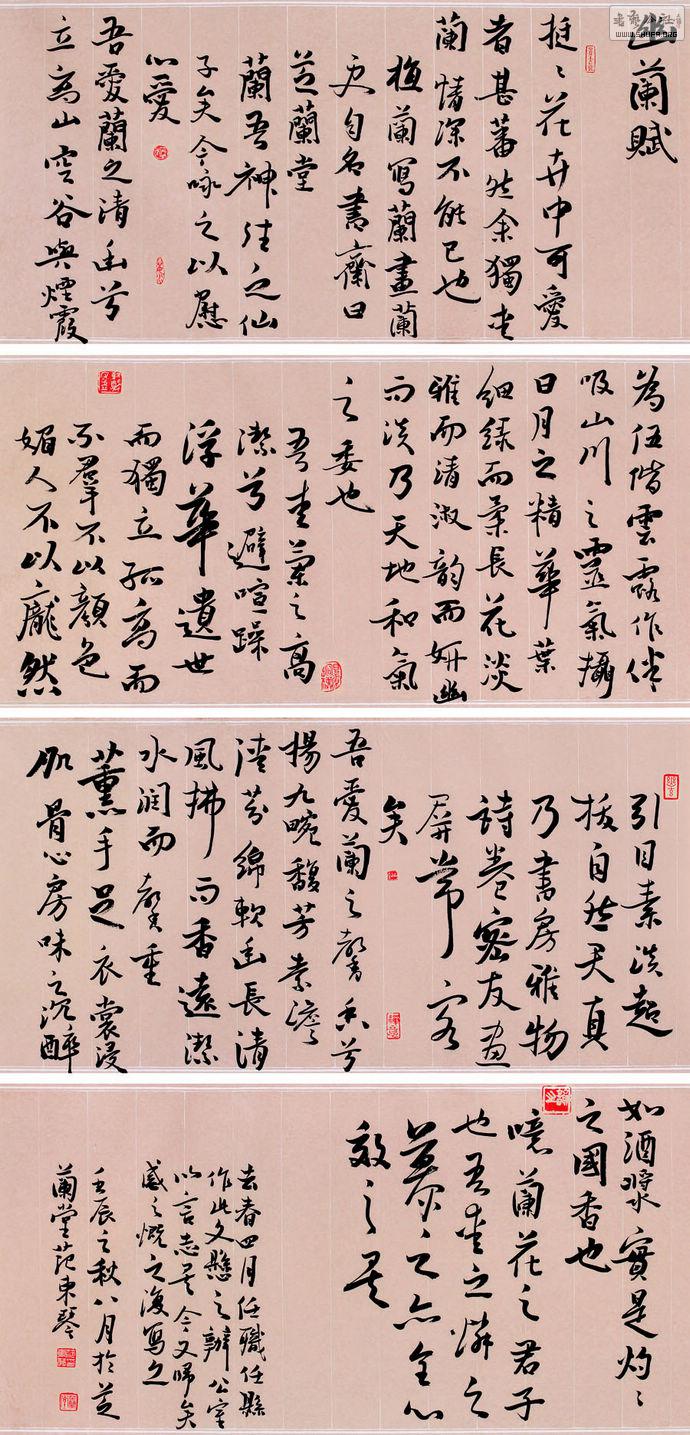 幽蘭賦
挺〻花卉中可愛
者甚蕃然余獨幸
蘭情深不能已也
植蘭寫蘭畫蘭
更自名書齋曰
芝蘭堂
蘭吾神往之仙
子矣今咏之以慰
心愛
吾愛蘭之清幽兮
立高山空谷與煙霞
為伍偕雲露作伴
吸山川之靈氣攝
日月之精華葉
細緑而柔長花淡
雅而清淑韵而妍幽
而淡乃天地和氣
之委也
吾愛蘭之高
潔兮避喧躁
浮華遺世
而獨立孤高而
不群不以顔色
媚人不以龐然
引目素淡超
拔自然天真
乃書房雅物
詩卷密友畫
屏常客
矣
吾愛蘭之馨香兮
揚九畹馥芳素澹
清芬綿軟幽長清
風拂而香遠潔
水潤而馨重
薰手足衣裳浸
肌骨心房味之沉醉
如酒漿實是灼〻
之國香也
噫蘭花之君子
也吾愛之憐之
慕之亦全心
效之矣
去春四月任職任縣
作此文懸之辦公室
以言志矣今又歸矣
感之慨之復寫之
壬辰之秋八月於芝
蘭堂范東琴
WWW.SHUFA.ORG